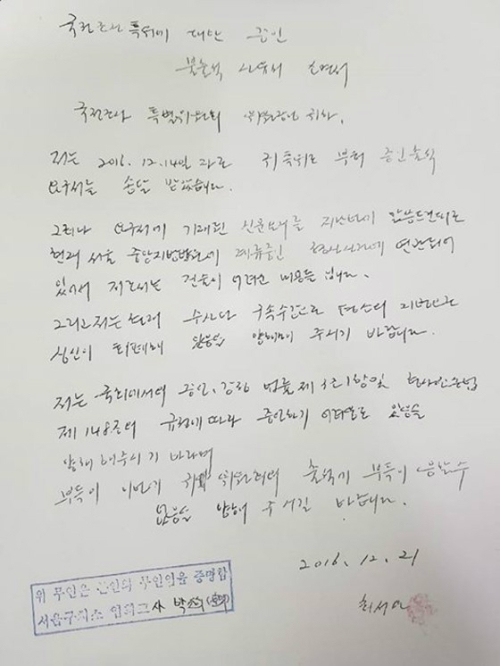 국정조사 특위에 대한 증인
불출석 사유서 소명서
국정조사 특별위원회 위원장님 귀하.
저는 2016.12.14일자로 귀 특위로 부터 증인출석
요구서를 송달 받았습니다.
그러나 요구서에 기재된 신문요지를
현재 서울 중앙지방법원에 계류중인 형사사건에 연관되어
있어서 저로서는 진술이 어려운 내용들 입니다.
그리고 저는 현재 구속수감으로
심신이 피폐해 있음을 양해해 주시기 바랍니다.
저는 국회에서의 증언, 감정 법률 제3조1항 및 형사소송법
제148조의 규정에 따라 증언하기 어려움을 있음을
양해 해주시기 바라며
부득이 이번 귀 위원회의 출석기 부득이 응할수
없음을 양해해 주시길 바랍니다.
2016.12.21
최서원
위 무인은 본인의 무인임을 증명함
서울구치소